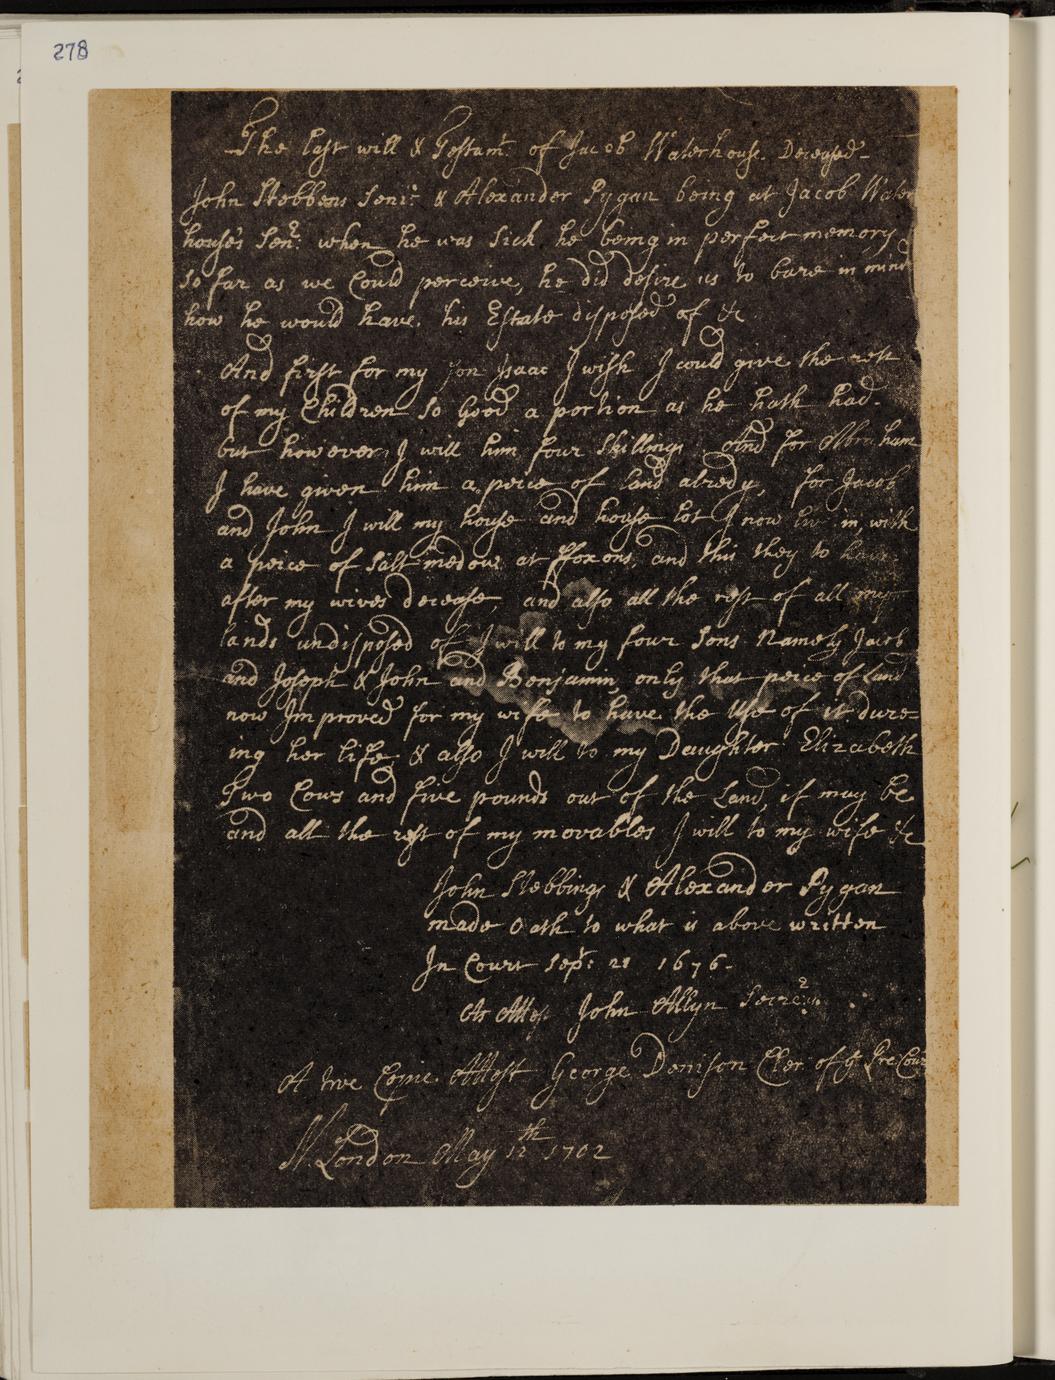 278
The last will & Testamt. of Jacob Waterhouse. Deceased-
John Stebbens Senir. & Alexander Pygan being at Jacob Water
house's Senr: when he was sick he being in perfect memory
so far as we Could perceive, he did desire us to bare in mind
how he would have. his Estate disposed of &c
And first for my son Isaac I wish I could give the rest
of my Children so Good a portion as he hath had.
but however, I will him four Shillings And for Abraham
I have given him a peice of land alredy, for Jacob
and John I will my house and house lot I now live in, with
a peice of Salt medow at ffoxons, and this they to have
after my wives decease, and also all the rest of all my
lands undisposed of I will to my four Sons Namely Jacob
and Joseph & John and Benjamin, only that peice of Land
now Improved for my wife to have the Use of it dure-
ing her life. & also I will to my Daughter Elizabeth
Two Cows and five pounds out of the Land, if may be
and all the rest of my movables I will to my wife &c
John Stebbings & Alexander Pygan
made Oath to what is above written
In Court Sept: 21 1676-
As Attest John Allyn Secrety.
A True Copie. Attest George Denison Cler. of ye
N. London May 12th 1702